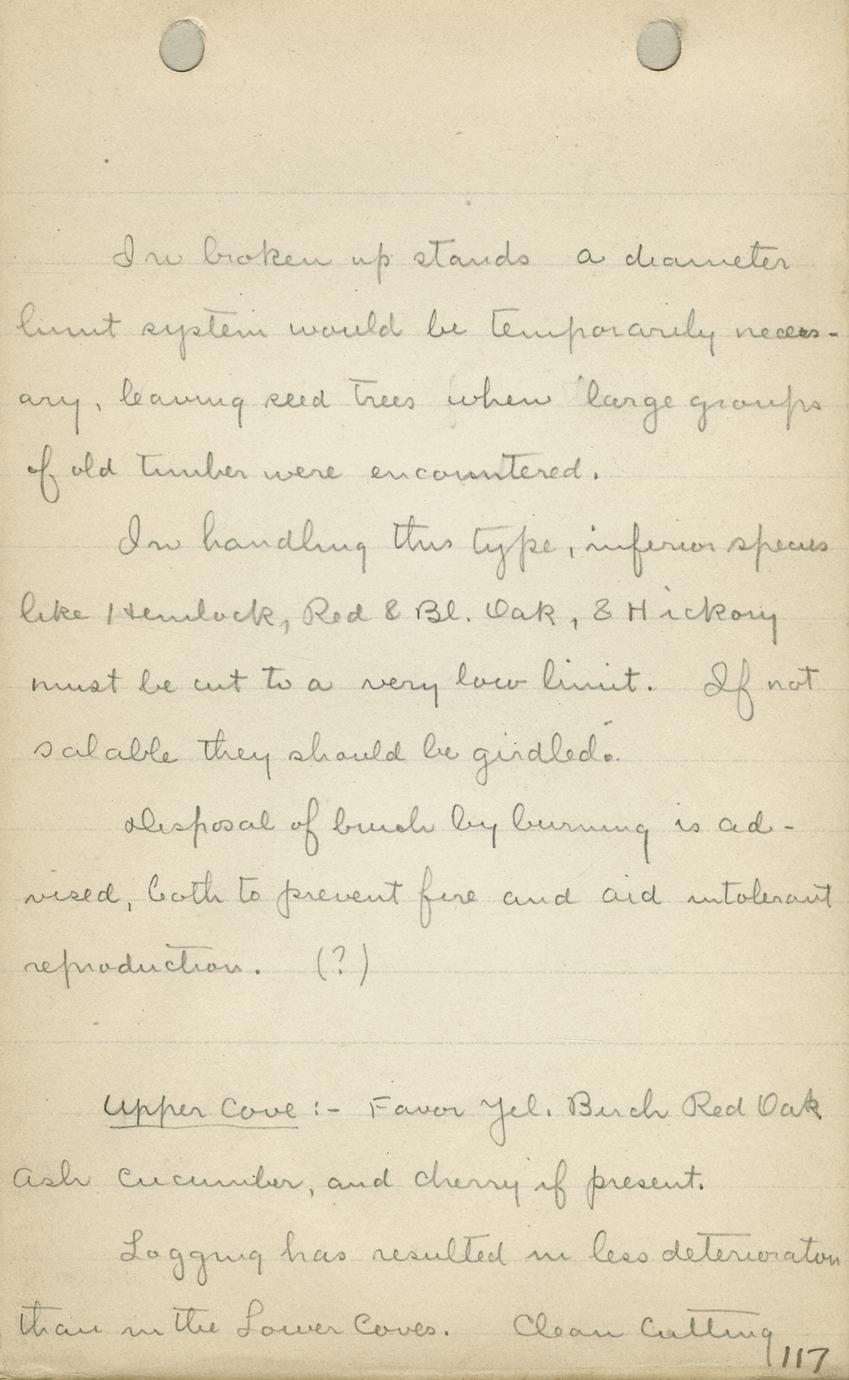 In broken up stands a diameter
limit system would be temporarily necess-
ary, leaving seed trees when large groups
of old timber were encountered.
In handling this type, inferior species
like Hemlock, Red & Bl. Oak, & Hickory
must be cut to a very low limit. If not
salable they should be girdled.
Disposal of brush by burning is ad-
vised, both to prevent fire and aid intolerant
reproduction. (?)
Upper Cove :- Favor Yel. Birch Red Oak
Ash Cucumber, and cherry if present.
Logging has resulted in less deterioraton
than in the Lower Coves. Clean Cutting
117